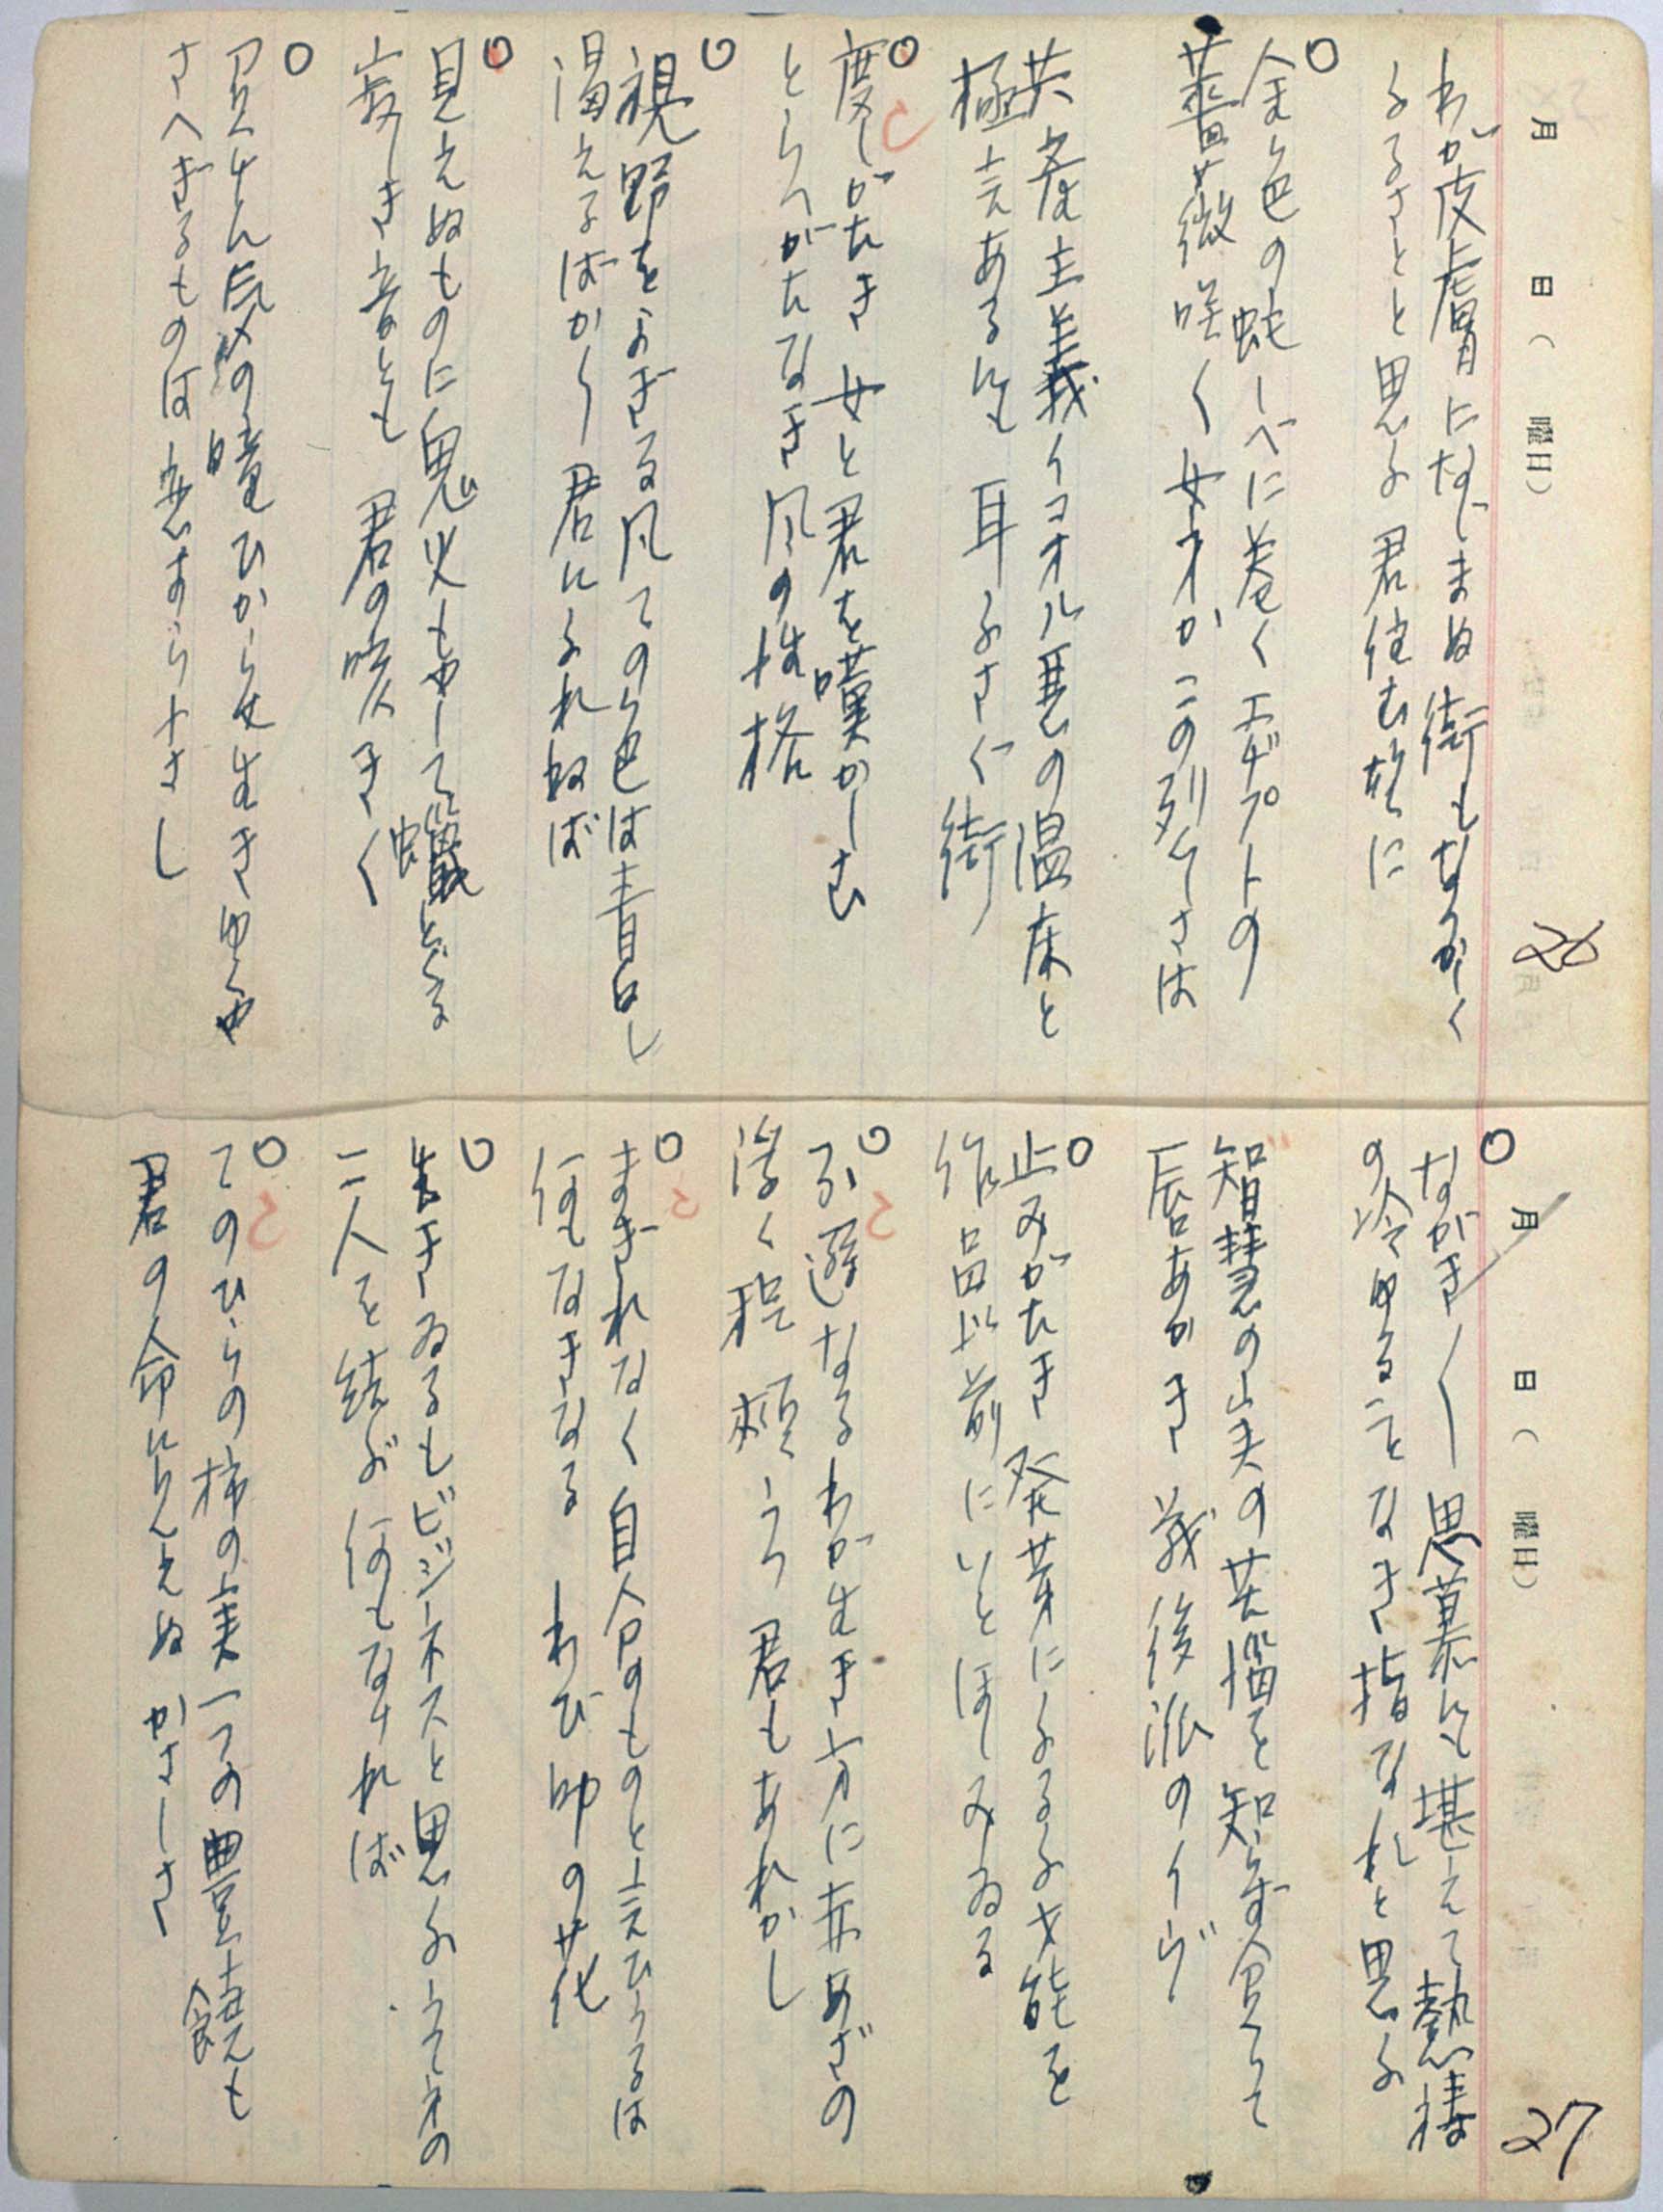 月 日（ 曜日） 26
わが皮膚になじまぬ街もなつかしく
ふるさとと思ふ君住む故に
○
金色の蛇しべに巻くエヂプトの
薔薇咲く女オかこの烈しさは
共産主義イコオル悪の温床と
極言あるにも耳ふさぐ街
○
度しがたき女と君を嘆かしむ
とらへがたなき風の性格
○
視野をよぎる風てのら色は青白し
渇えるばかり君にふれねば
○
見えぬものに鬼火もやして蟻どくる
寂しき音とも君の咳きく
○
罠けん気の瞳ひからせ生きゆくや
さへぎるものは悪すらナさし
月 日（ 曜日） 27
○
ながき〱思慕にも堪えて熱祷
の冷ゆることなき指なれと思ふ
智慧の実の苦悩を知らず食らひて
唇あかき 戦後派のイヴ
○
止みがたき発芽にふるるふ才能を
作品以前にいとほしみゐる
○
不遜なるわが生き方に赤あざの
浮く程頬うつ君もあれかし
○
まぎれなく自分のものと言ひうるは
何もなきなる わび助の花
○
生きゐるもビジネスと思ふうつしみの
二人を結ぶ何もなければ
○
てのひらの柿の実一つの豊饒も
君の命に与へえぬ かなしさ